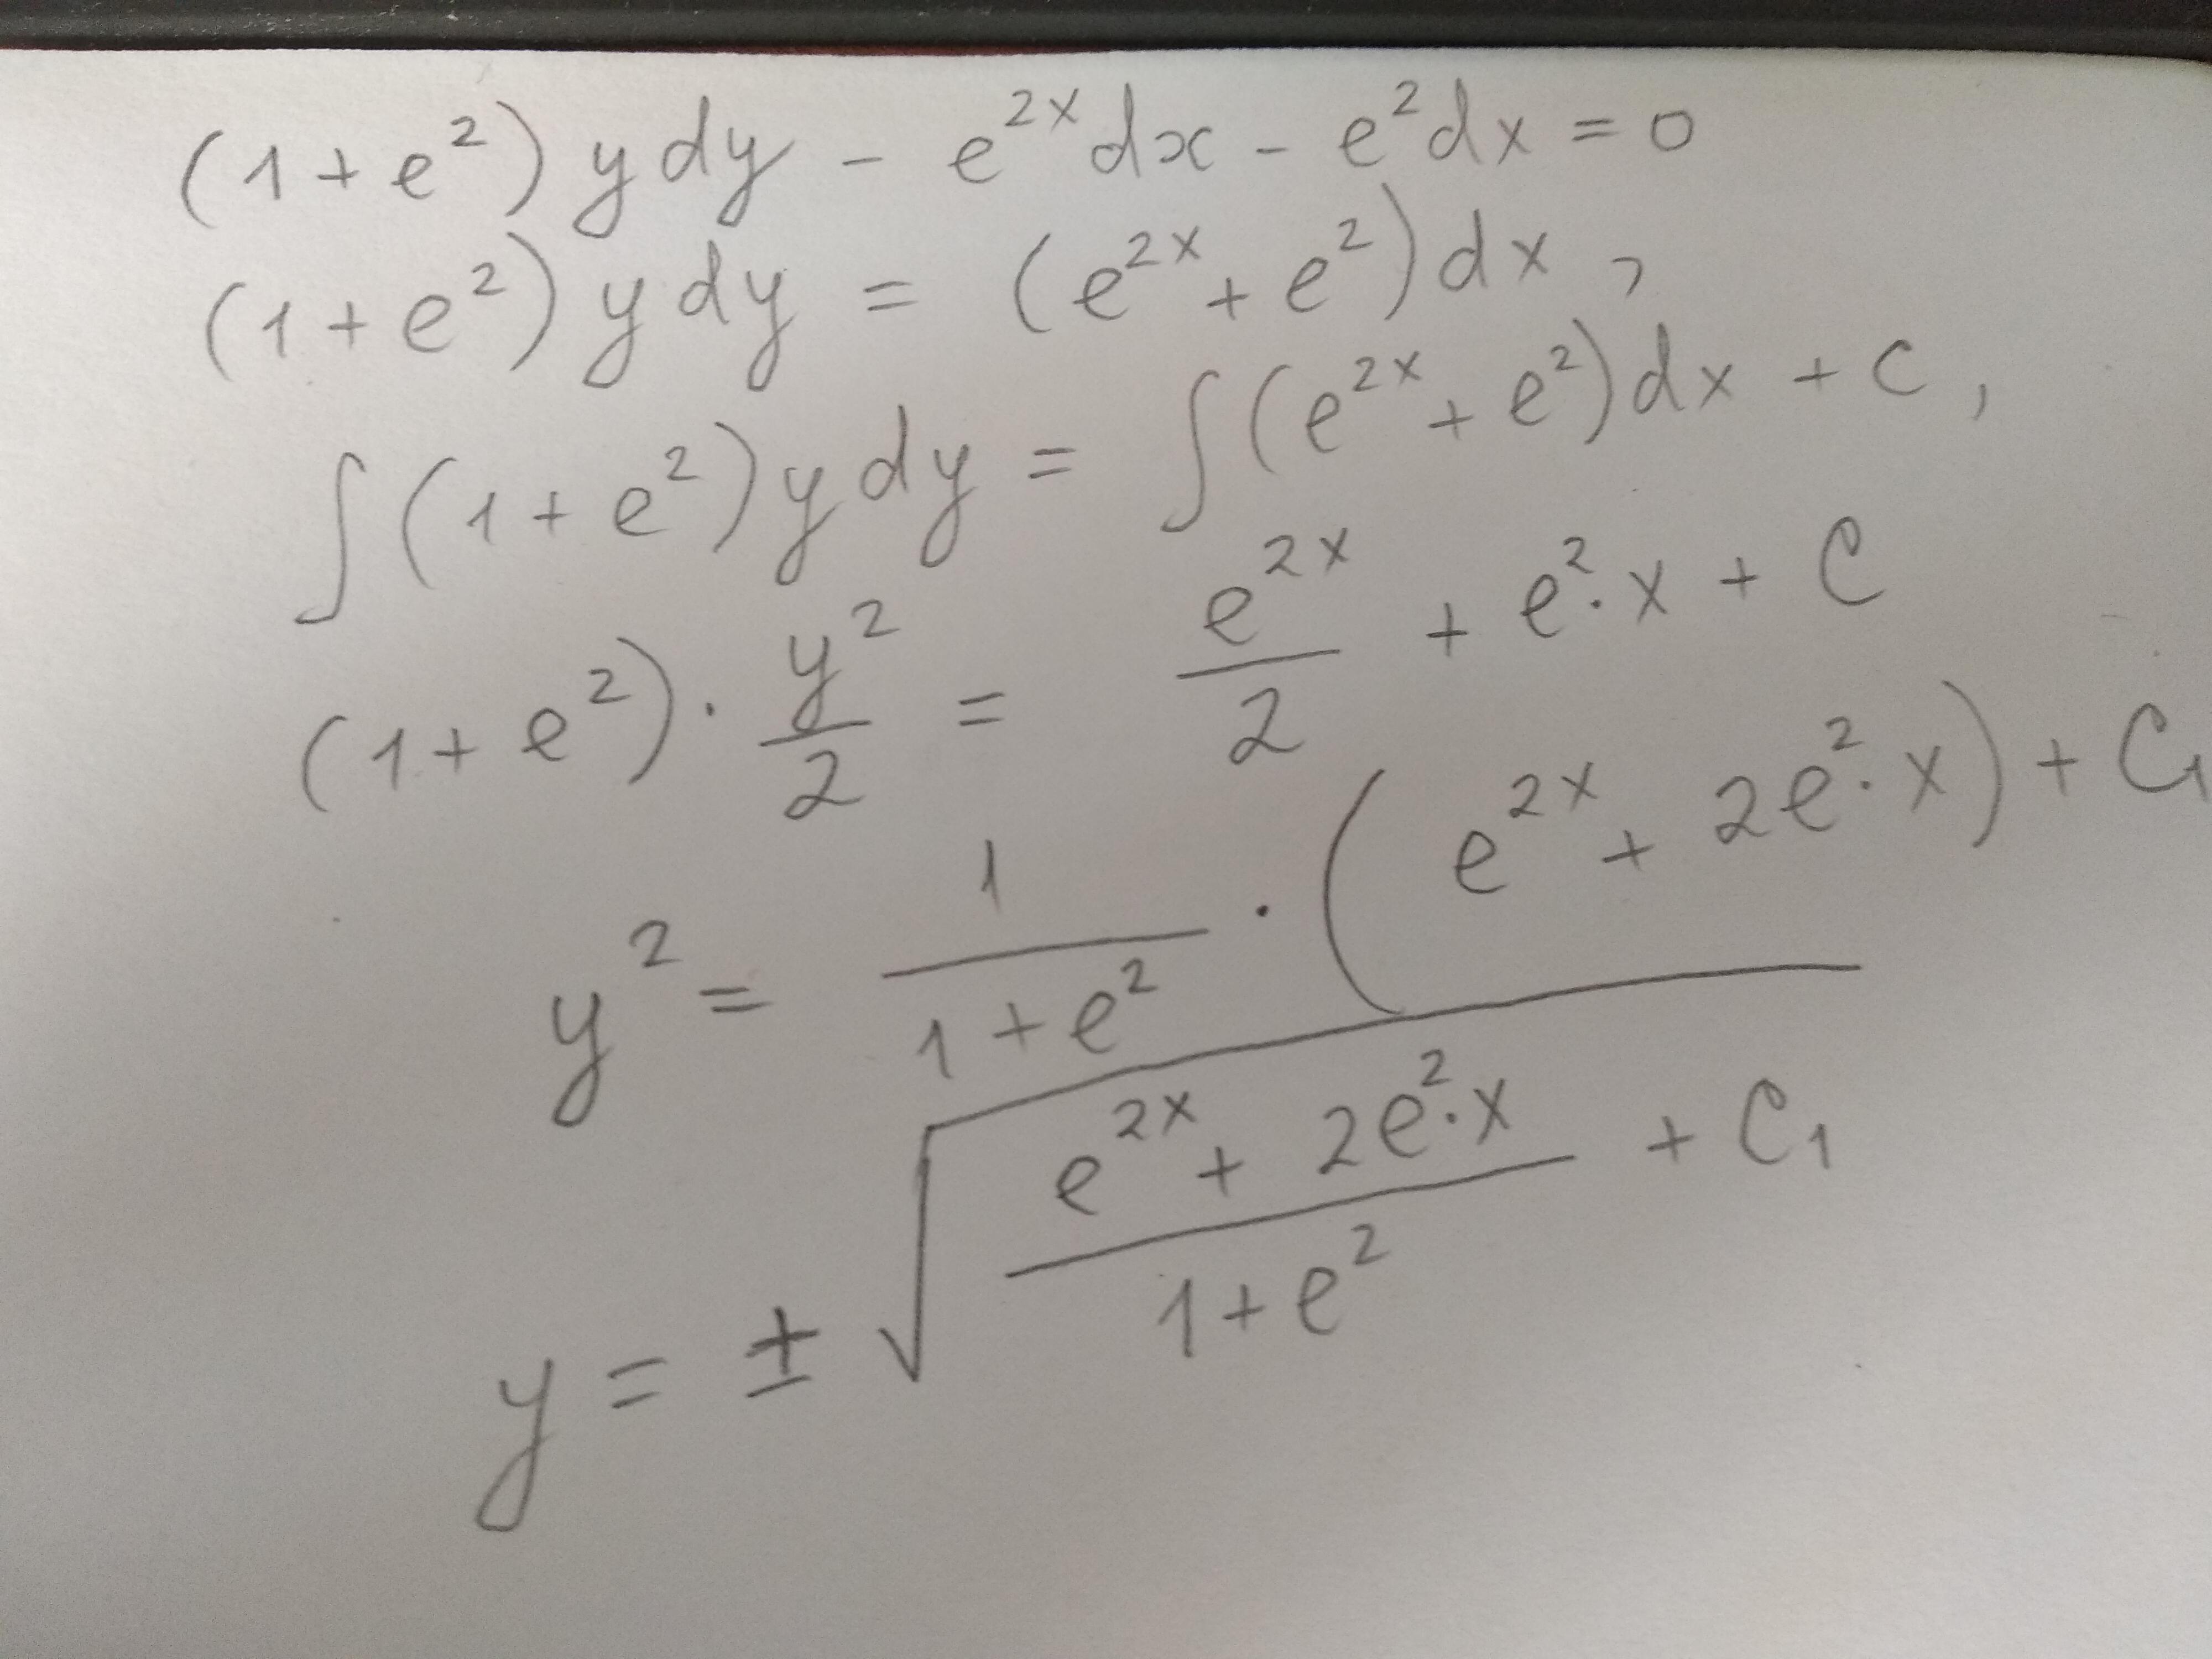 (1 + e²) y dy - e²ˣ dx - e² dx = 0
(1 + e²) y dy = (e²ˣ + e²) dx ,
∫ (1 + e²) y dy = ∫ (e²ˣ + e²) dx + C ,
(1 + e²) · y²/2 = e²ˣ/2 + e² · x + C
y² = 1/(1 + e²) · (e²ˣ + 2e² · x) + C₁
y = ± √((e²ˣ + 2e² · x)/(1 + e²) + C₁)